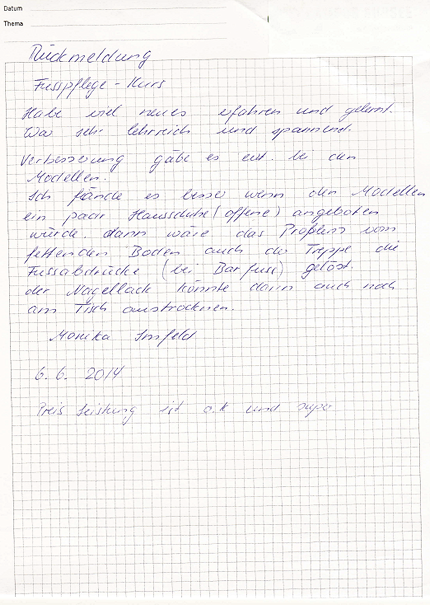 Datum
Thema
Rückmeldung
Fusspflege-Kurs
Habe viel neues erfahren und gelernt.
War sehr lehrreich und spannend.
Verbesserung gäbe es evt. bei den
Modellen.
Ich fände es besser wenn den Modellen
ein paar Hausschuhe (offene) angeboten
würde. dann wäre das Problem vom
fettenden Boden auch die Treppe die
Fussabdrücke (bei Barfuss) gelöst.
der Nagellack könnte dann auch noch
am Tisch austrocknen.
Monika Imfeld
6. 6. 2014
Preis Leistung ist o.k und super